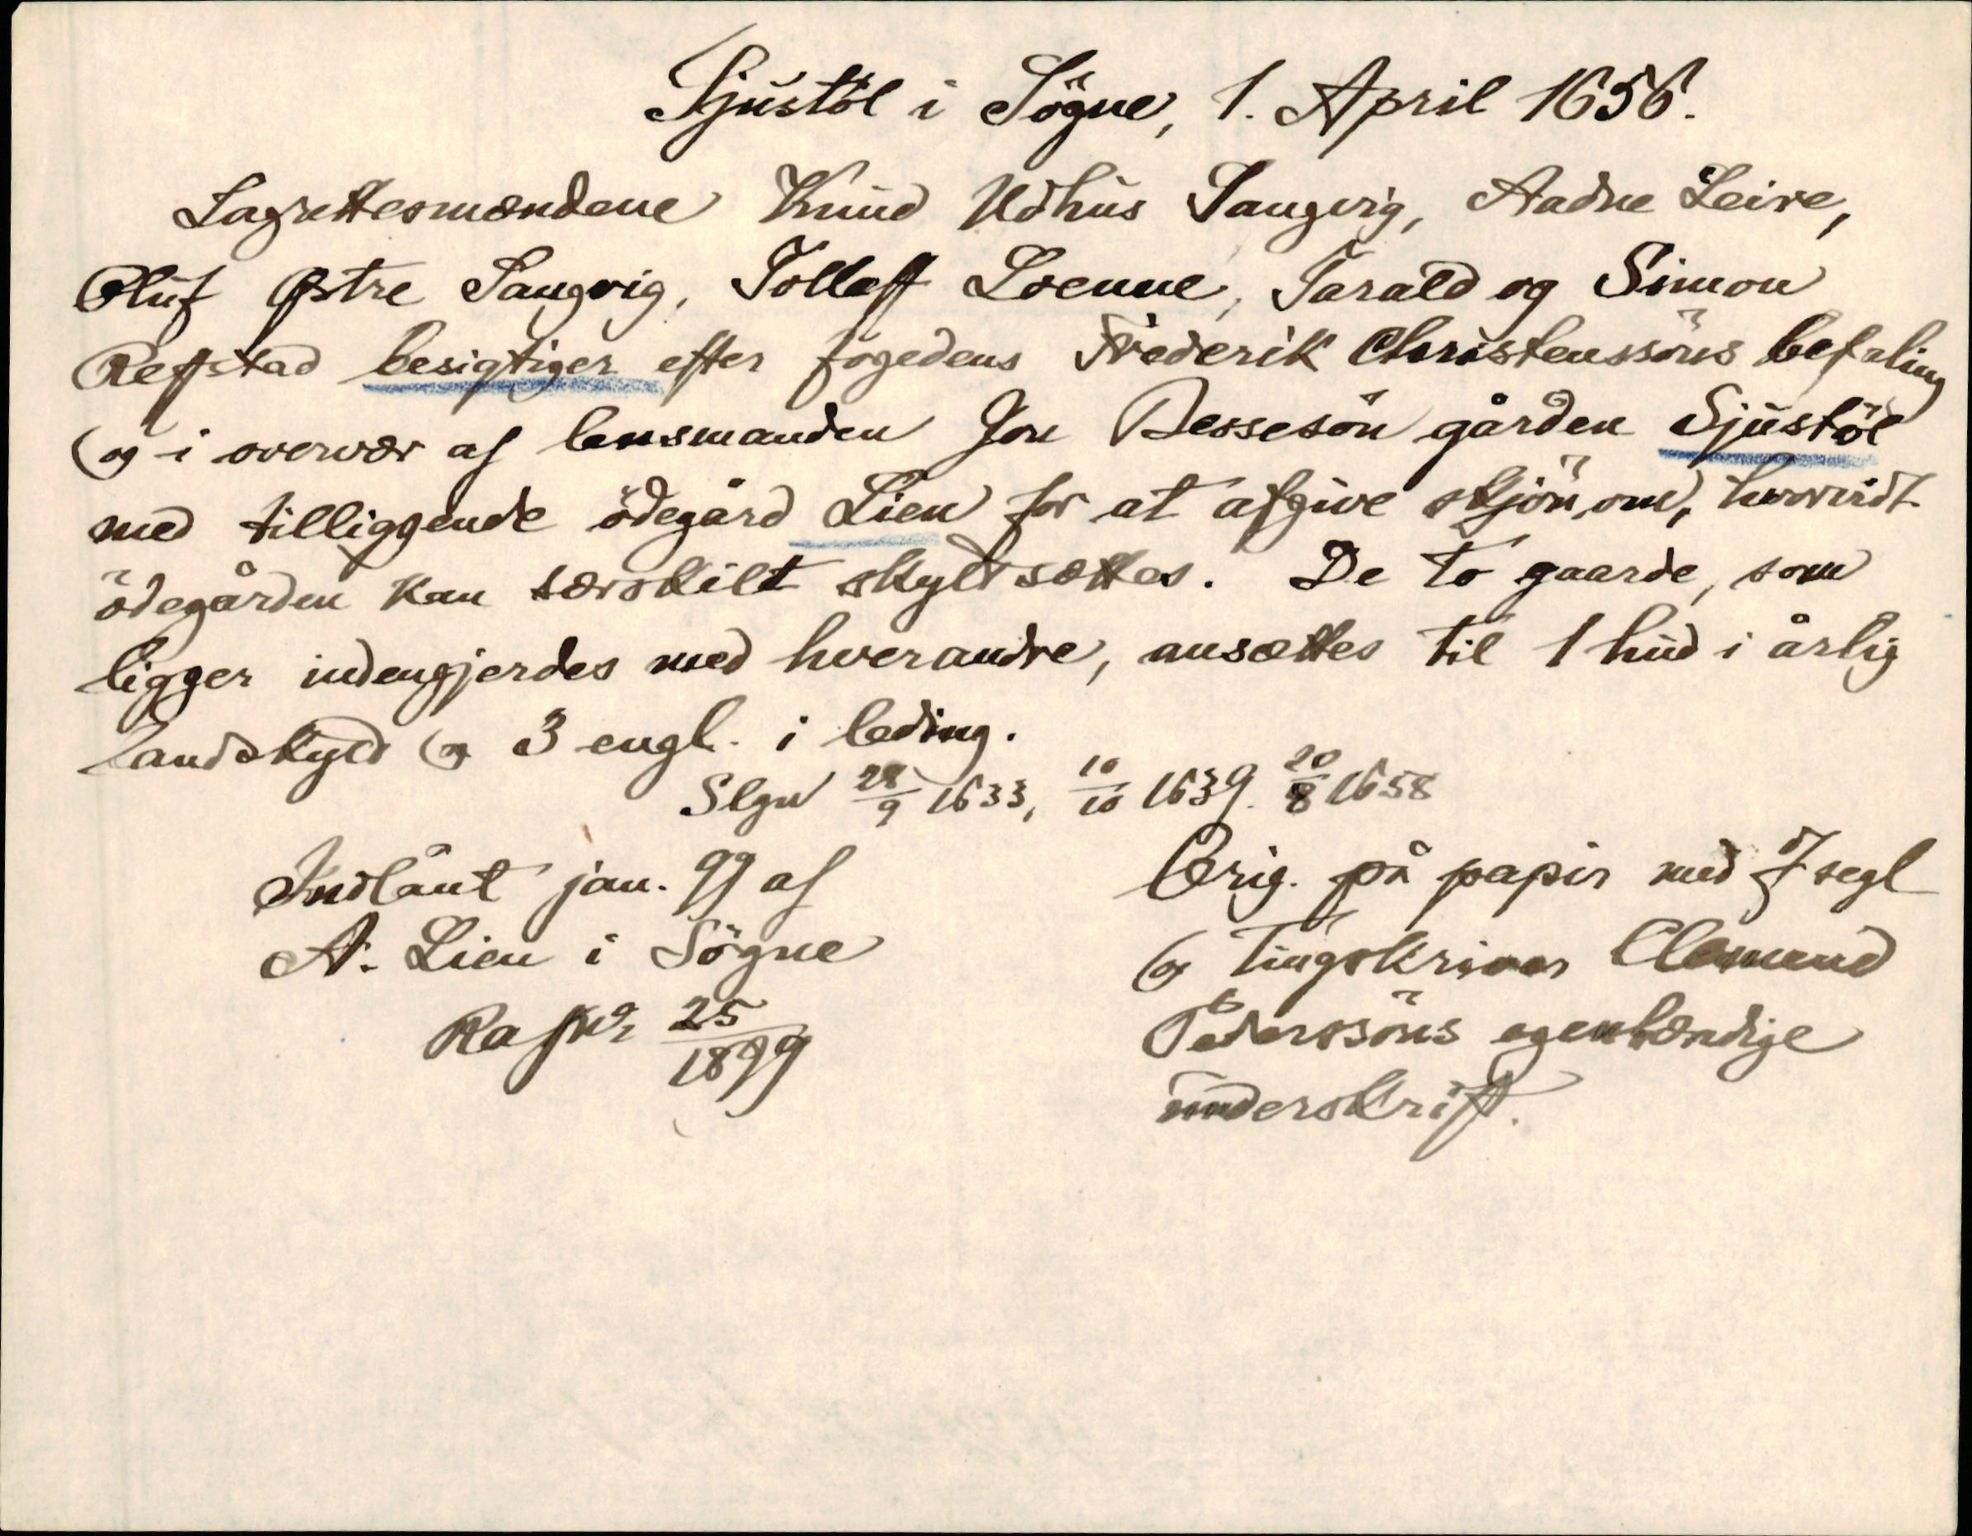 Sjustöl i Sögne, 1. April 1656.
Lagrettesmændene Knud Udhus Tangvig, Aadne Leire,
Oluf Østre Tangvig, Tollaff Loenne, Tarald og Simon
Reffstad besigtiger efter fogedens Frederik Christenssöns befaling
og i overvær af lensmanden Jon Bessesön gården Sjustöl
med tilliggende ödegård Lien for at afgive skjön om, hvorvidt
ödegården kan særskilt skyldsættes. De to gaarde, som
ligger indengjerdes med hverandre, ansættes til 1 hud i årlig
landskyld og 3 engl. i leding.
Slgn 28/9 1633, 10/10 1639. 20/8 1658
Indlånt jan. 99 af
A. Lien i Sögne
Ra 25/1899
Orig. på papir med 7 segl
og Tingskriver Clemend
Pederssöns egenhændige
underskrift.